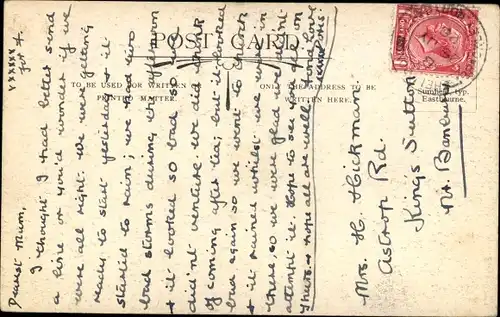 POST CARD
TO BE USED FOR WRITTEN OR
PRINTED MATTER.
ONLY THE ADDRESS TO BE
WRITTEN HERE.
Sumfield, typ.
Eastbourne.
Dearest Mum,
I thought I had better send
a line or you'd wonder if we
were all right. we were getting
ready to start yesterday & it
started to rain; we had two
bad storms during the afternoon
& it looked so bad so we
did n't venture. we did think
of coming after tea; but it looked
bad again so we went to church
& it rained whilst we were in
there, so we were glad we did n't
attempt it. Hope to see you on
Thurs. Hope all are well, fond love
xxxxxx
for
Mrs. H. Hickman
Astrop Rd.
King's Sutton
Nr. Banbury